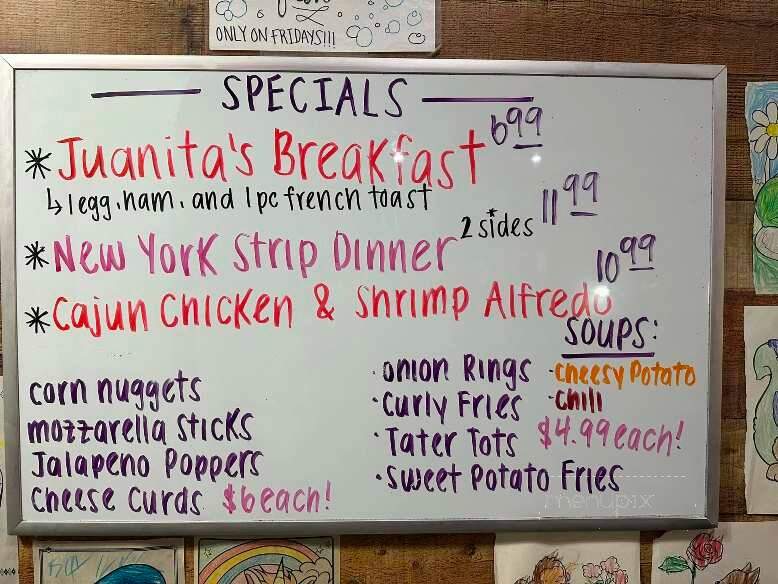 ONLY ON FRIDAYS!!!
SPECIALS
* Juanita's Breakfast 6 99
↳ 1 egg, ham, and 1 pc french toast
* New York Strip Dinner 2 sides 11 99
* Cajun Chicken & Shrimp Alfredo 10 99
corn nuggets
mozzarella sticks
Jalapeno Poppers
Cheese Curds $6 each!
· Onion Rings
· Curly Fries
· Tater Tots $4.99 each!
· Sweet Potato Fries
SOUPS:
· Cheesy Potato
· Chili
menupix